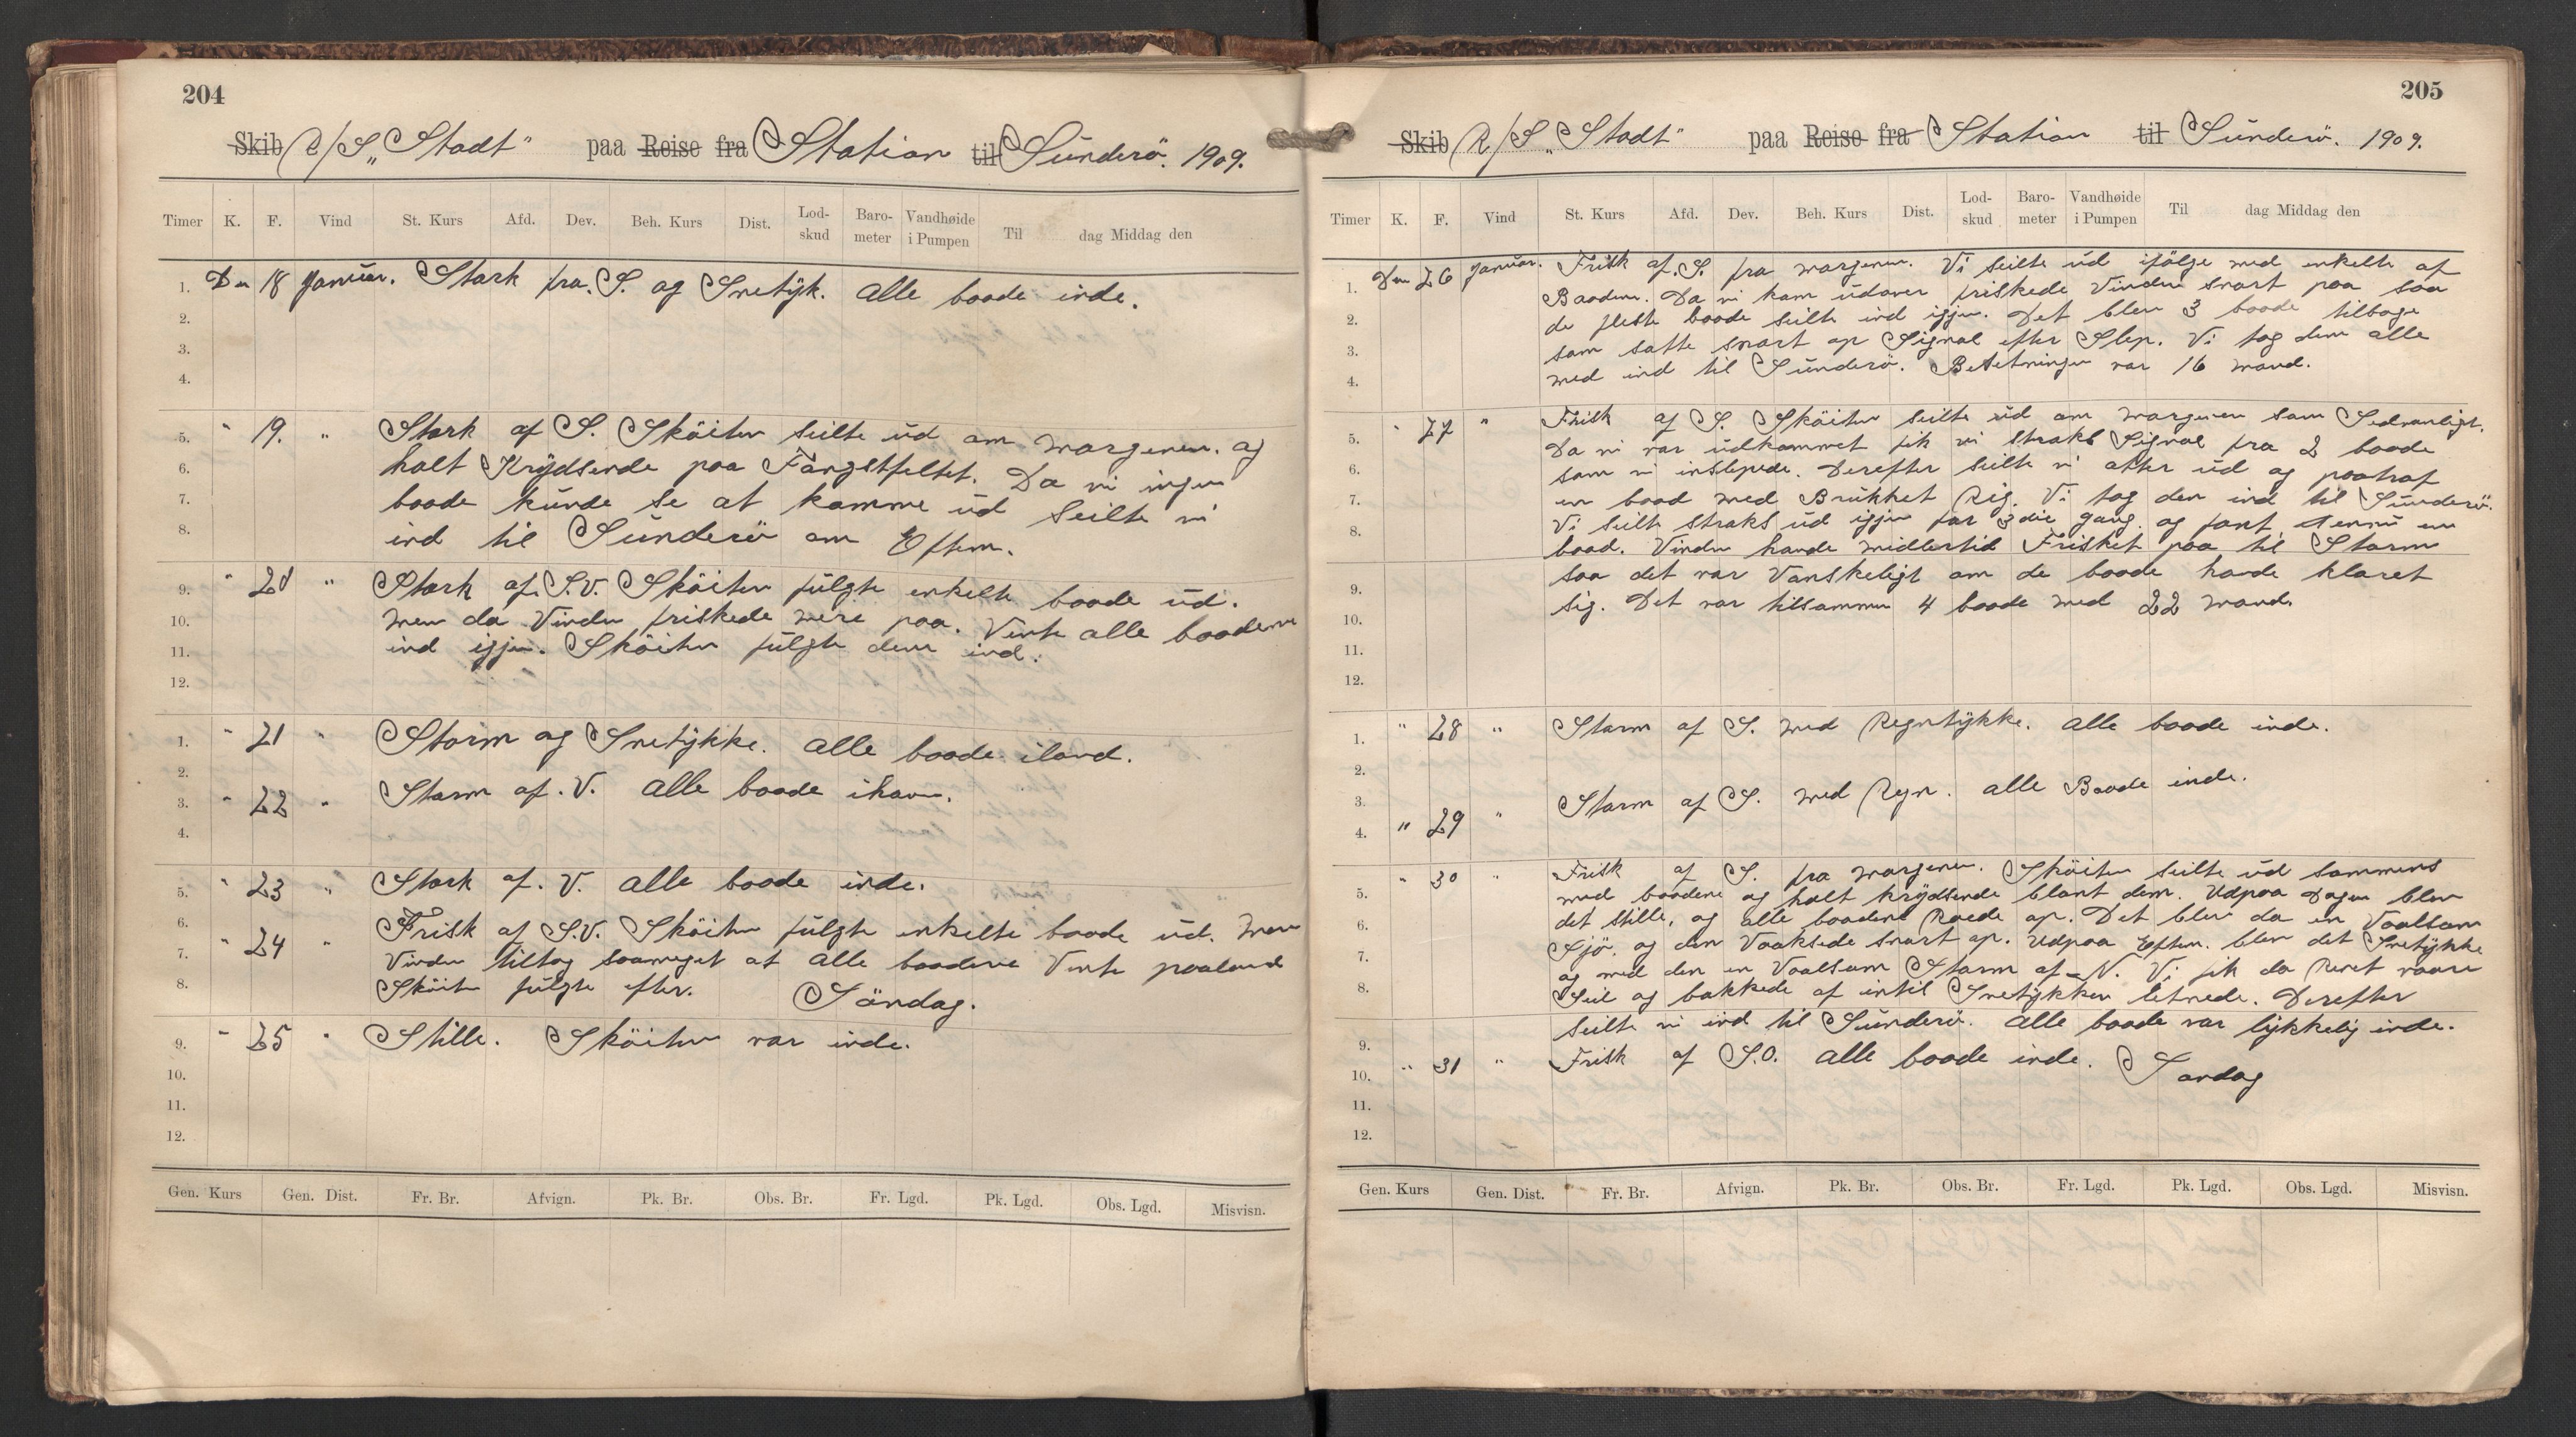 204
Skib R/S „Stadt" paa Reise fra Station til Sunderö. 1909.
Timer K. F. Vind St. Kurs Afd. Dev. Beh. Kurs Dist. Lod-skud Baro-meter Vandhøide i Pumpen Til dag Middag den
1. Den 18 Januar. Stærk fra. S. og Snetyk. Alle baade inde.
2.
3.
4.
5. " 19. " Stærk af S. Sköiten seilte ud om morgenen. og
6. holt Krydsende paa Fangstfeltet. Da vi ingen
7. baade kunde se at komme ud seilte vi
8. ind til Sunderö om Eftm.
9. " 20 " Stærk af. S.V. Sköiten fulgte enkelte baade ud.
10. men da Vinden friskede mere paa. Vente alle baadene
11. ind igjen. Sköiten fulgte dem ind.
12.
1. " 21 " Storm og Snetykke. alle baade iland.
2.
3. " 22 " Storm af. V. alle baade ihavn.
4.
5. " 23 " Stærk af. V. alle baade inde.
6. Frisk af S.V. Sköiten fulgte enkelte baade ud. Men
7. " 24 " Vinden tiltog saameget at alle baadene Vente paaland
8. Sköiten fulgte efter. Söndag.
9. " 25 " Stille. Sköiten var inde.
10.
11.
12.
Gen. Kurs Gen. Dist. Fr. Br. Afvign. Pk. Br. Obs. Br. Fr. Lgd. Pk. Lgd. Obs. Lgd. Misvisn.
205
Skib R/S „Stadt" paa Reise fra Station til Sunderö. 1909.
Timer K. F. Vind St. Kurs Afd. Dev. Beh. Kurs Dist. Lod-skud Baro-meter Vandhøide i Pumpen Til dag Middag den
1. Den 26 Januar. Frisk af. S. fra morgenen. Vi seilte ud ifölge med enkelte af
Baadene. Da vi kom udover friskede Vinden snart paa saa
2. de fleste baade seilte ind igjen. Det blev 3 baade tilbage
3. som satte snart op Signal efter Slep. Vi tog dem alle
4. med ind til Sunderö. Besetningen var 16 mand.
5. " 27 " Frisk af S. Sköiten seilte ud om morgenen som Sedvanligt.
Da vi var udkommet fik vi straks Signal fra 2 baade
6. som vi inslepede. Derefter seilte vi atter ud og paatraf
7. en baad med Brukket Rig. Vi tog den ind til Sunderö.
8. Vi seilte straks ud igjen for 3die gang. og fant ennu en
baad. Vinden havde midlertid Frisket paa til Storm
9. saa det var Vanskeligt om de baade havde klaret
10. sig. Det var tilsammen 4 baade med 22 mand.
11.
12.
1. " 28 " Storm af S. med Regntykke. alle baade inde.
2.
3. Storm af S. med Regn. alle Baade inde.
4. " 29 "
5. " 30 " Frisk af S. fra morgenen. Sköiten seilte ud sammens
med baadene og holt krydsende blant dem. Udpaa Dagen blev
6. det stille, og alle baadene Roede op. Det blev da en Voalsom
7. Sjö. og den Voaksede snart op. Udpaa Eftm. blev det Snetykke
og med den en Voalsom Storm af N. Vi fik da Revet vaare
8. Seil og bakkede af intil Snetykken letnede. Derefter
seilte vi ind til Sunderö. alle baade var lykkelig inde.
9.
10. " 31 " Frisk af S.O. alle baade inde. Söndag
11.
12.
Gen. Kurs Gen. Dist. Fr. Br. Afvign. Pk. Br. Obs. Br. Fr. Lgd. Pk. Lgd. Obs. Lgd. Misvisn.